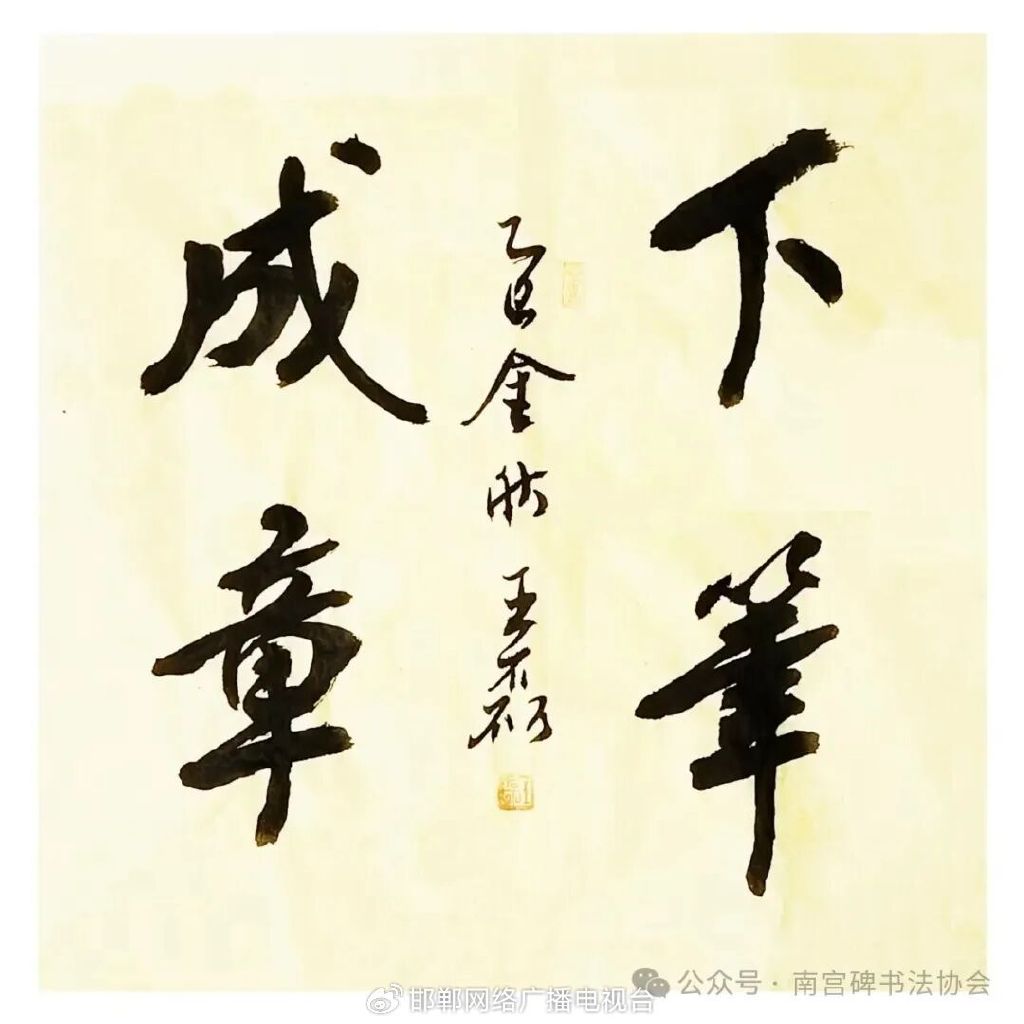 下筆
成章
乙巳金秋王磊
公众号·南宫碑书法协会
@邯郸网络广播电视台